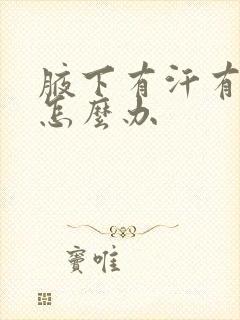 腋下有汗有
怎麼办
窦唯